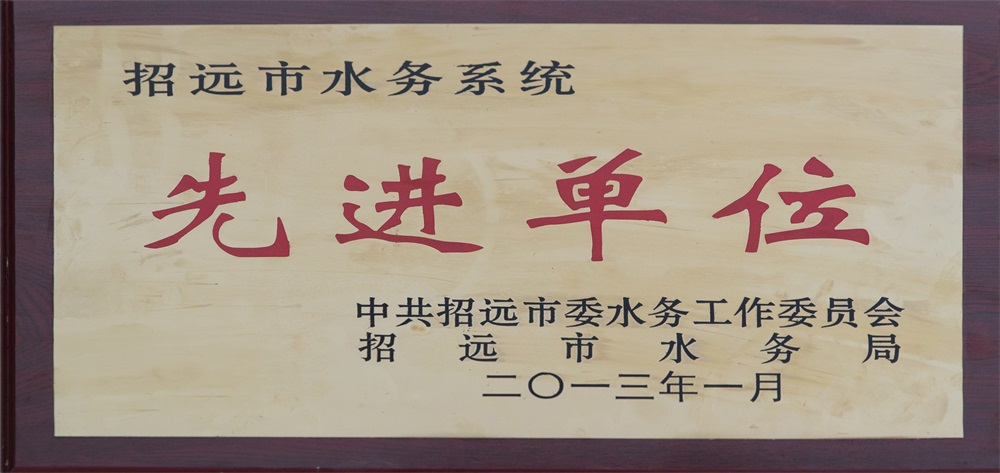 招远市水务系统
先进单位
中共招远市委水务工作委员会
招远市水务局
二〇一三年一月